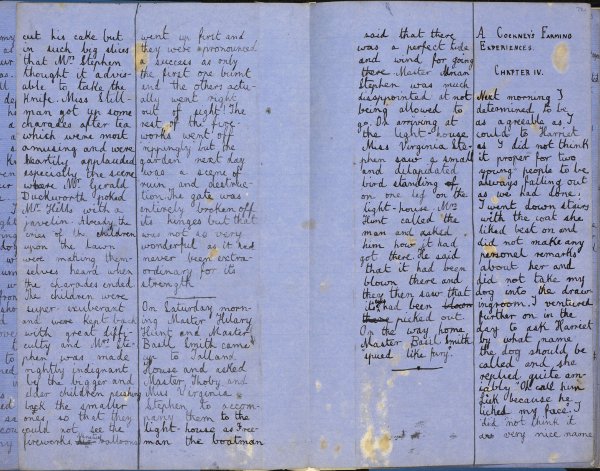 cut his cake but
in such big slices
that Mrs Stephen
thought it advis-
able to take the
knife. Miss Still-
man got up some
charades after tea
which were most
amusing and were
heartily applauded
especially the scene
where Mr Gerald
Duckworth poked
Mr Hills with a
javelin. Already the
cries of the children
upon the lawn
were making them-
selves heard when
the charades ended.
The children were
super-exuberant
and were kept back
with great diffi-
culty and Mrs Ste-
phen was made
rightly indignant
by the bigger and
elder children pushing
back the smaller
ones, so that they
could not see the
fireworks balloons
went up first and
they were pronounced
a success as only
the first one burnt
and the others actu-
ally went right
out of sight! The
rest of the fire
works went off
rippingly but the
garden next day
was a scene of
ruin and destruc-
tion. The gate was
entirely broken off
its hinges but that
was not so very
wonderful as it had
never been extra-
ordinary for its
strength
On Saturday morn-
ing Master Hilary
Hunt and Master
Basil Smith came
up to Talland
House and asked
Master Thoby and
Miss Virginia
Stephen to accom-
pany them to the
light-house as Free-
man the boatman
said that there
was a perfect tide
and wind for going
there. Master Adrian
Stephen was much
disappointed at not
being allowed to
go. On arriving at
the light-house
Miss Virginia Ste-
phen saw a small
and dilapidated
bird standing
on one leg on the
light-house. Mrs
Hunt called the
man and asked
him how it had
got there. He said
that it had been
blown there and
they then saw that
its eyes had been
picked out.
On the way home
Master Basil Smith
"spued like fury".
A COCKNEY'S FARMING
EXPERIENCES.
CHAPTER IV.
Next morning I
determined to be
as agreable as I
could to Harriet
as I did not think
it proper for two
young people to be
always falling out
as we had done.
I went down stairs
with the coat she
liked best on and
did not make any
personal remarks
about her and
did not take my
dog into the draw-
ingroom. I ventured
further on in the
day to ask Harriet
by what name
the dog should be
called and she
replied quite am-
iably "Oh call him
Lick because he
licked my face". I
did not think it
a very nice name